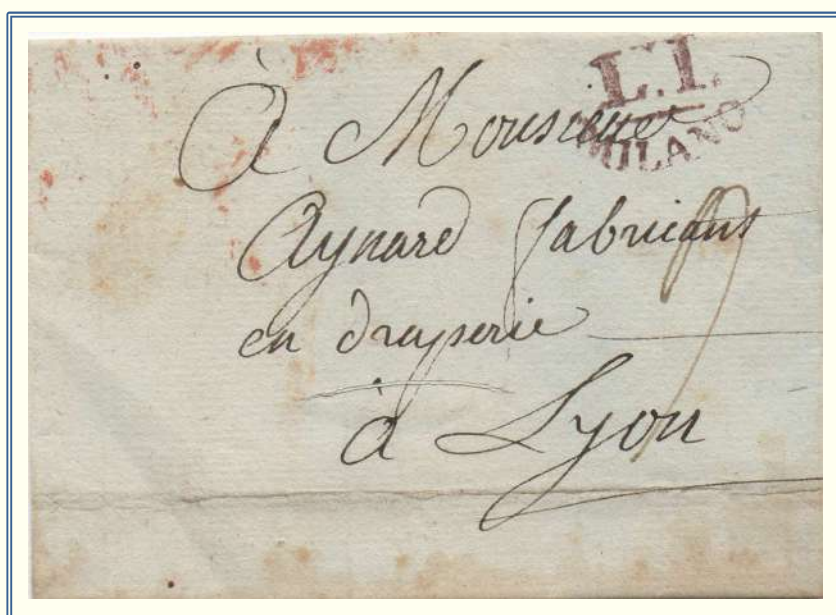 L.I.
MILANO
À Monsieur
Aynard fabricant
en draperie
à Lyon